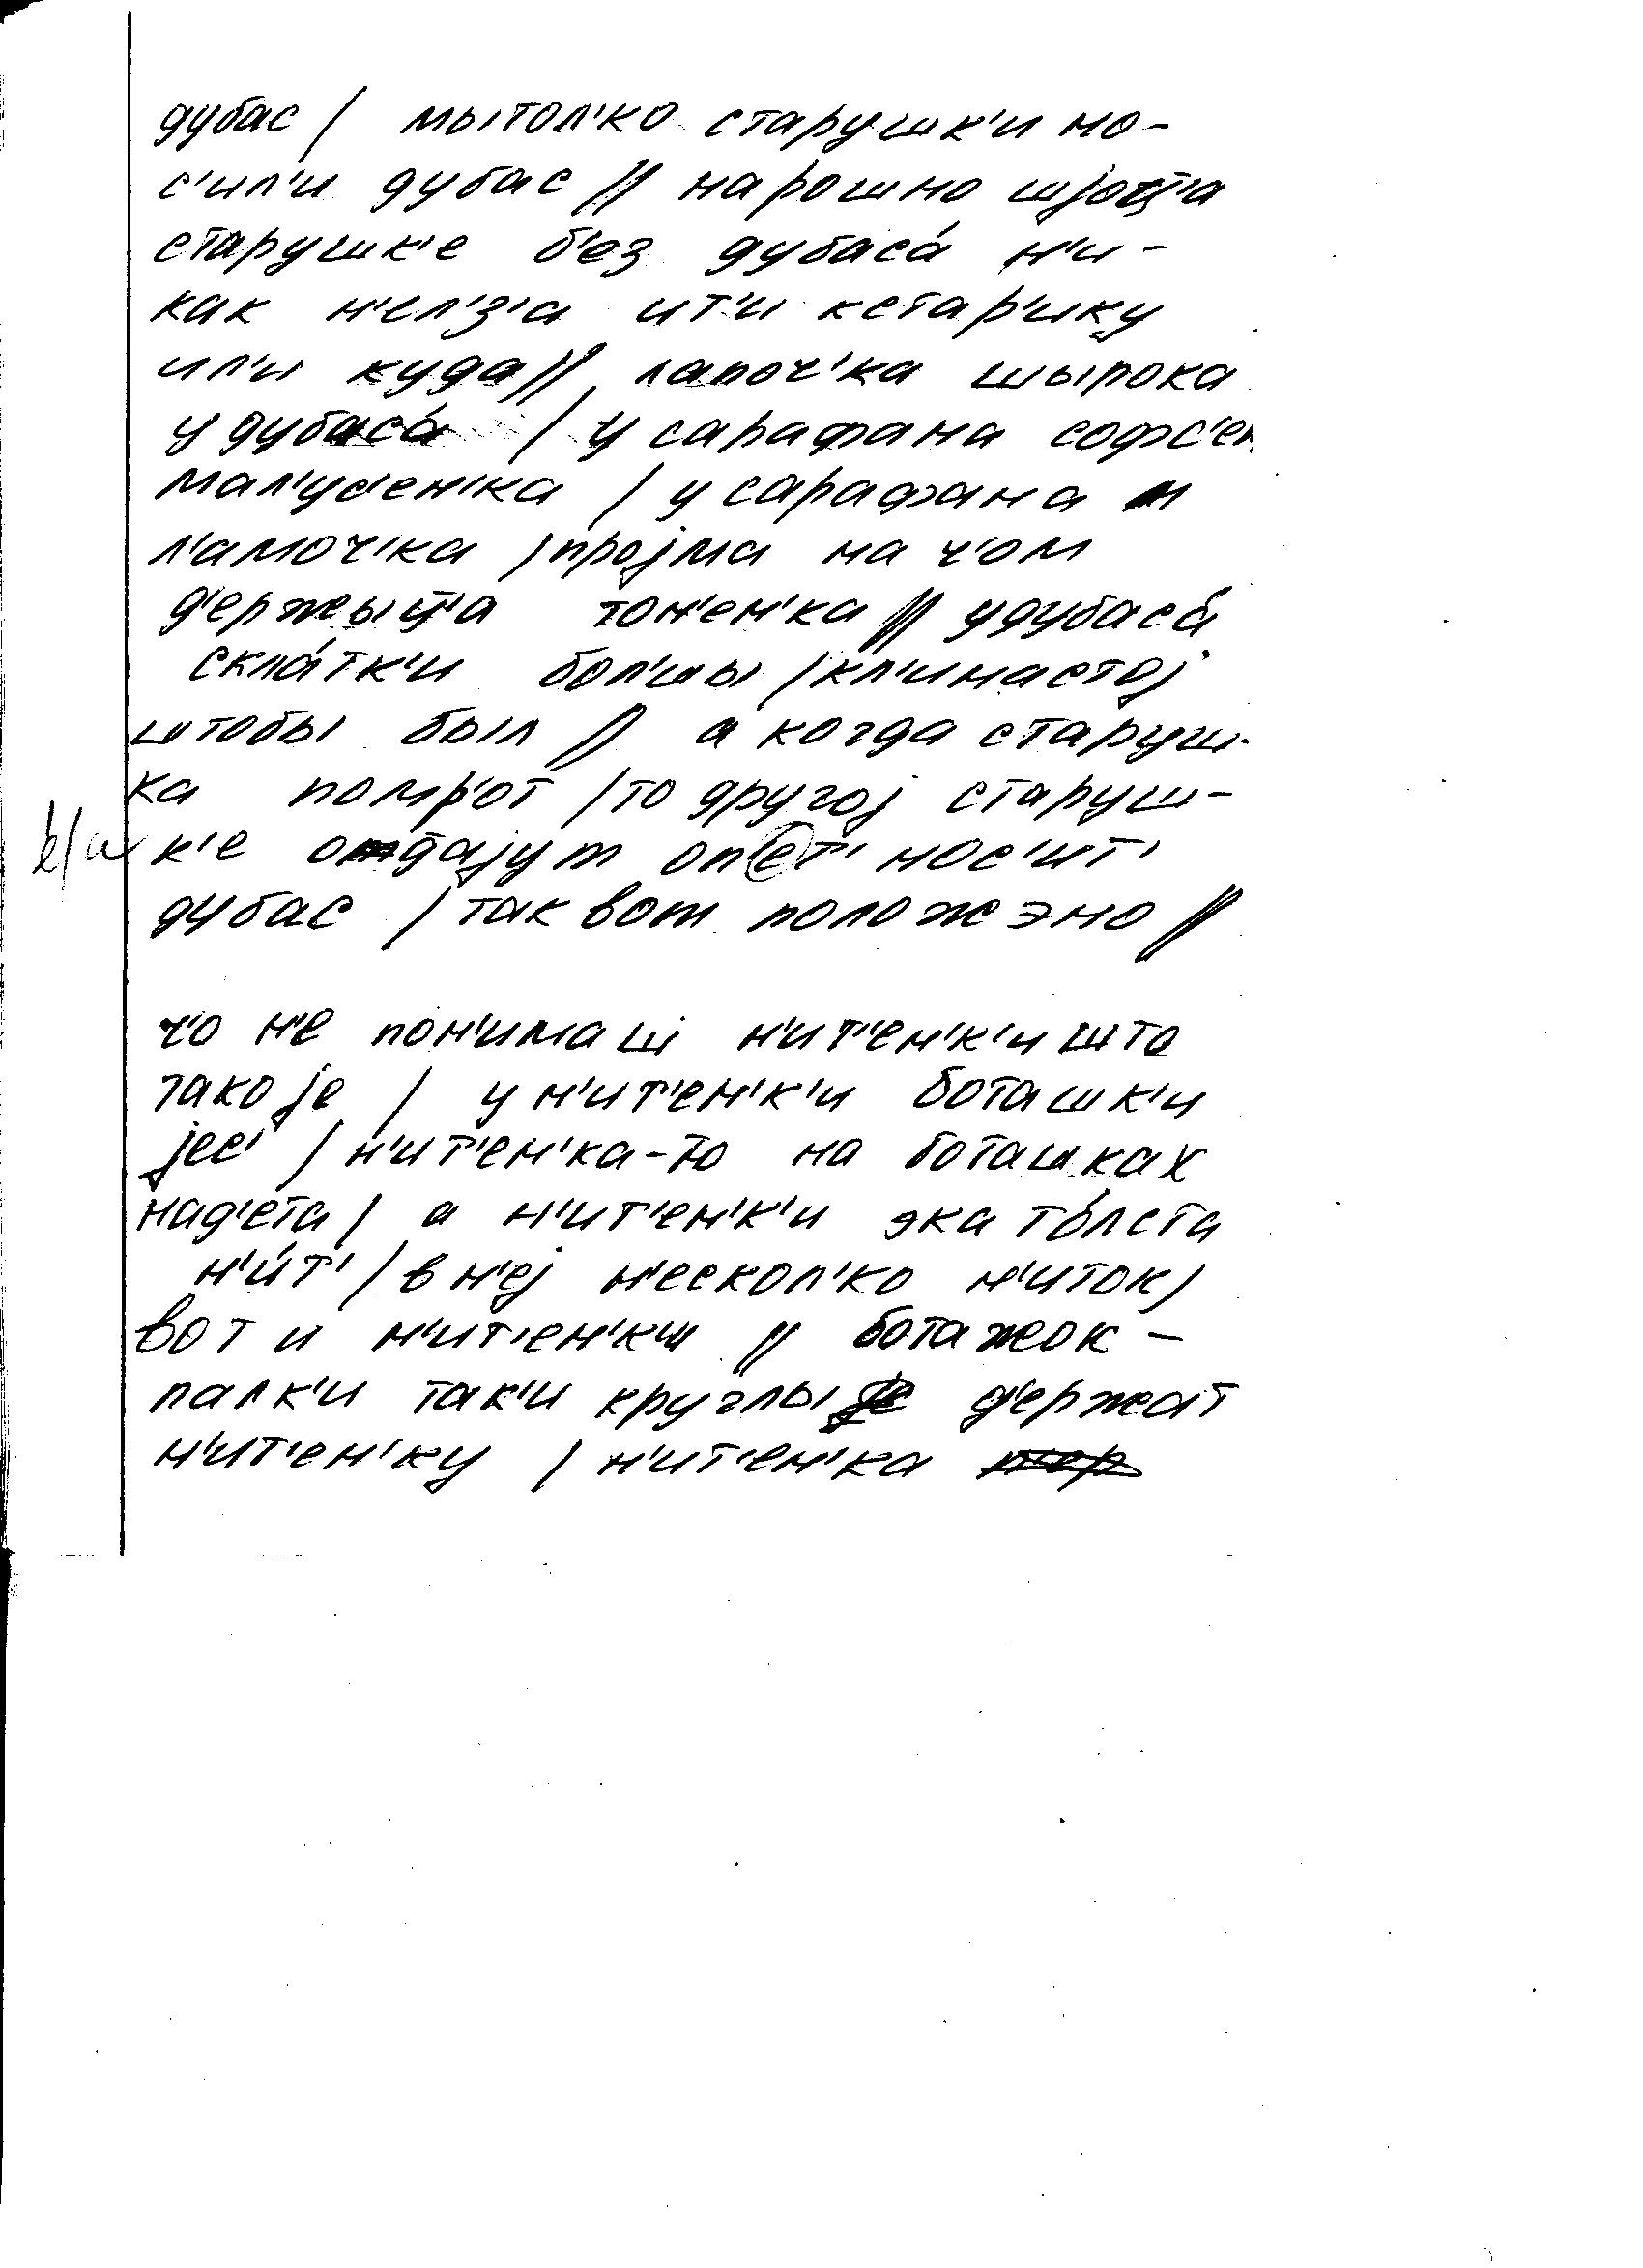 дубас / мы тол'ко старушк'и но-
с'ил'и дубас // нарошно шjоц̄'а
старушк'е б'ез дубаса́ н'и-
как н'ел'з'а ит'и кстар'ику
ил'и куда // лапоч'ка шырока
у дубаса́ / у сарафана софс'ем
мал'ус'ен'ка / у сарафана
л'амоч'ка / проjма на ч'ом
д'ержыц̄'а тон'ен'ка // у дубаса́
скла́тк'и бол'шы / кл'инастоj
штобы был // а когда старуш-
ка помр'от / то другоj старуш-
к'е отдаjут оп'ет' нос'ит'
дубас / так вот положэно //
ч'о н'е пон'имаш н'ит'ен'к'и што
такоjе / у н'ит'ен'к'и боташк'и
jес' / н'ит'ен'ка-то на боташках
над'ета / а н'ит'ен'к'и эка то́лста
н'и́т' / в н'еj н'ескол'ко н'иток /
вот и н'ит'ен'к'и // ботажок -
палк'и так'и круглы д'ержат
н'ит'ен'ку / н'ит'ен'ка